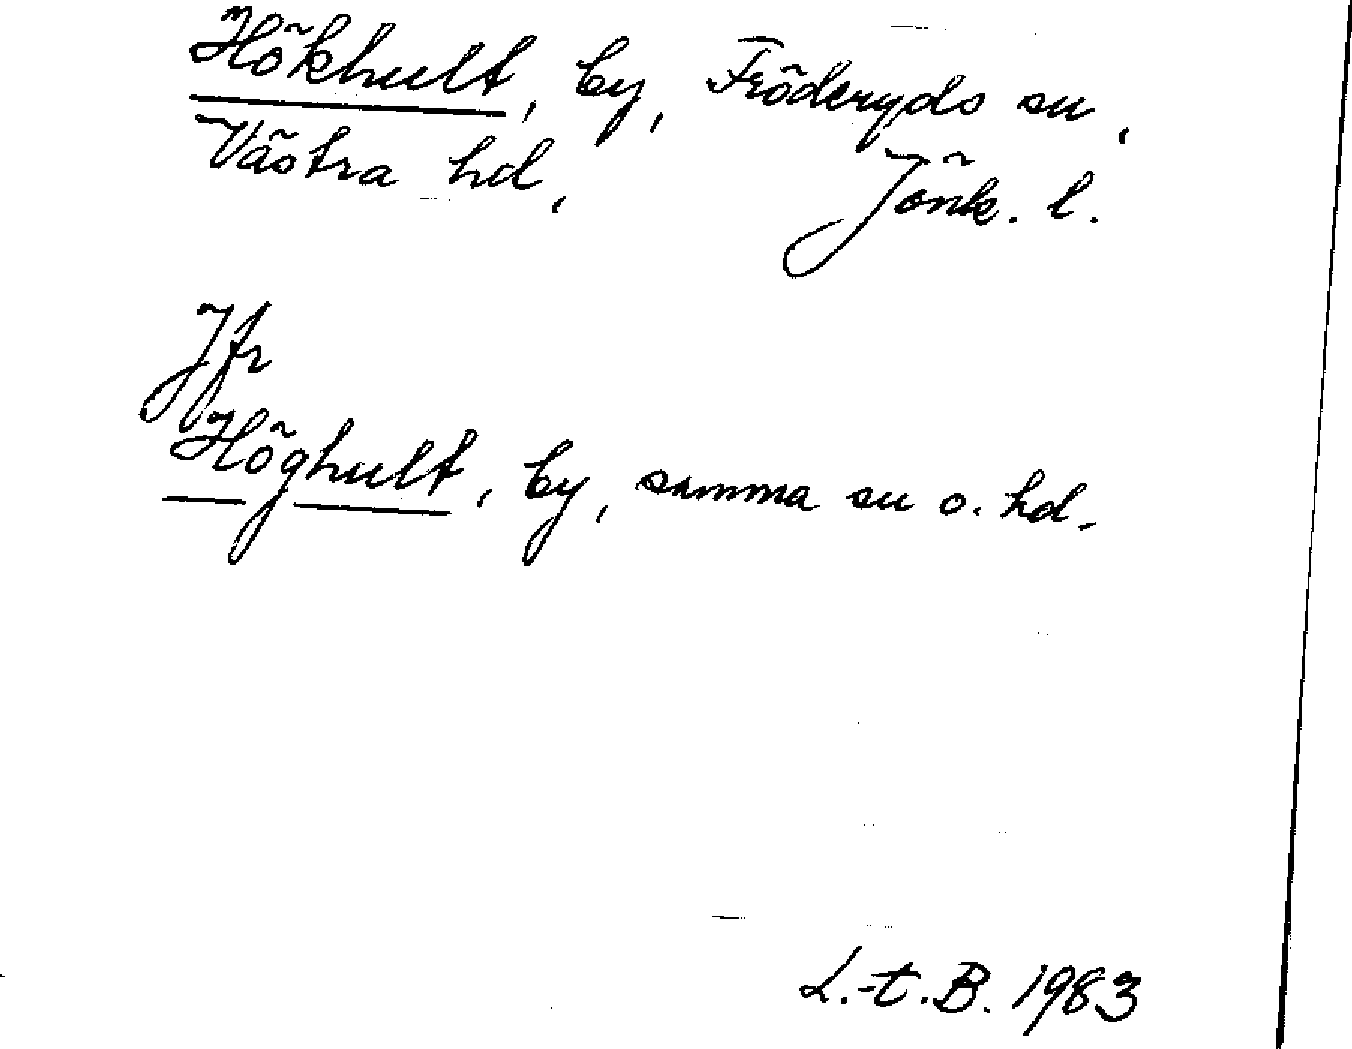 Hökhult, by, Fröderyds sn,
Västra hd, Jönk. l.
Jfr
Höghult, by, samma sn o. hd.
L.-t. B. 1983